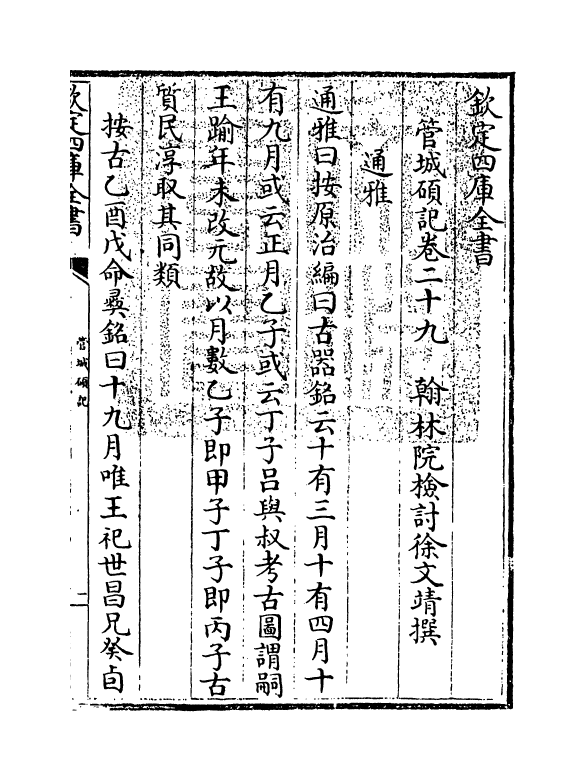 欽定四庫全書
管城碩記卷二十九　翰林院檢討徐文靖撰
通雅
通雅曰按原治編曰古器銘云十有三月十有四月十
有九月或云正月乙子或云丁子呂與叔考古圖謂嗣
王踰年未改元故以月數乙子即甲子丁子即丙子古
質民淳取其同類
按古乙酉戊命彝銘曰十九月唯王祀世昌兄癸卣
欽定四庫全書
管城碩記